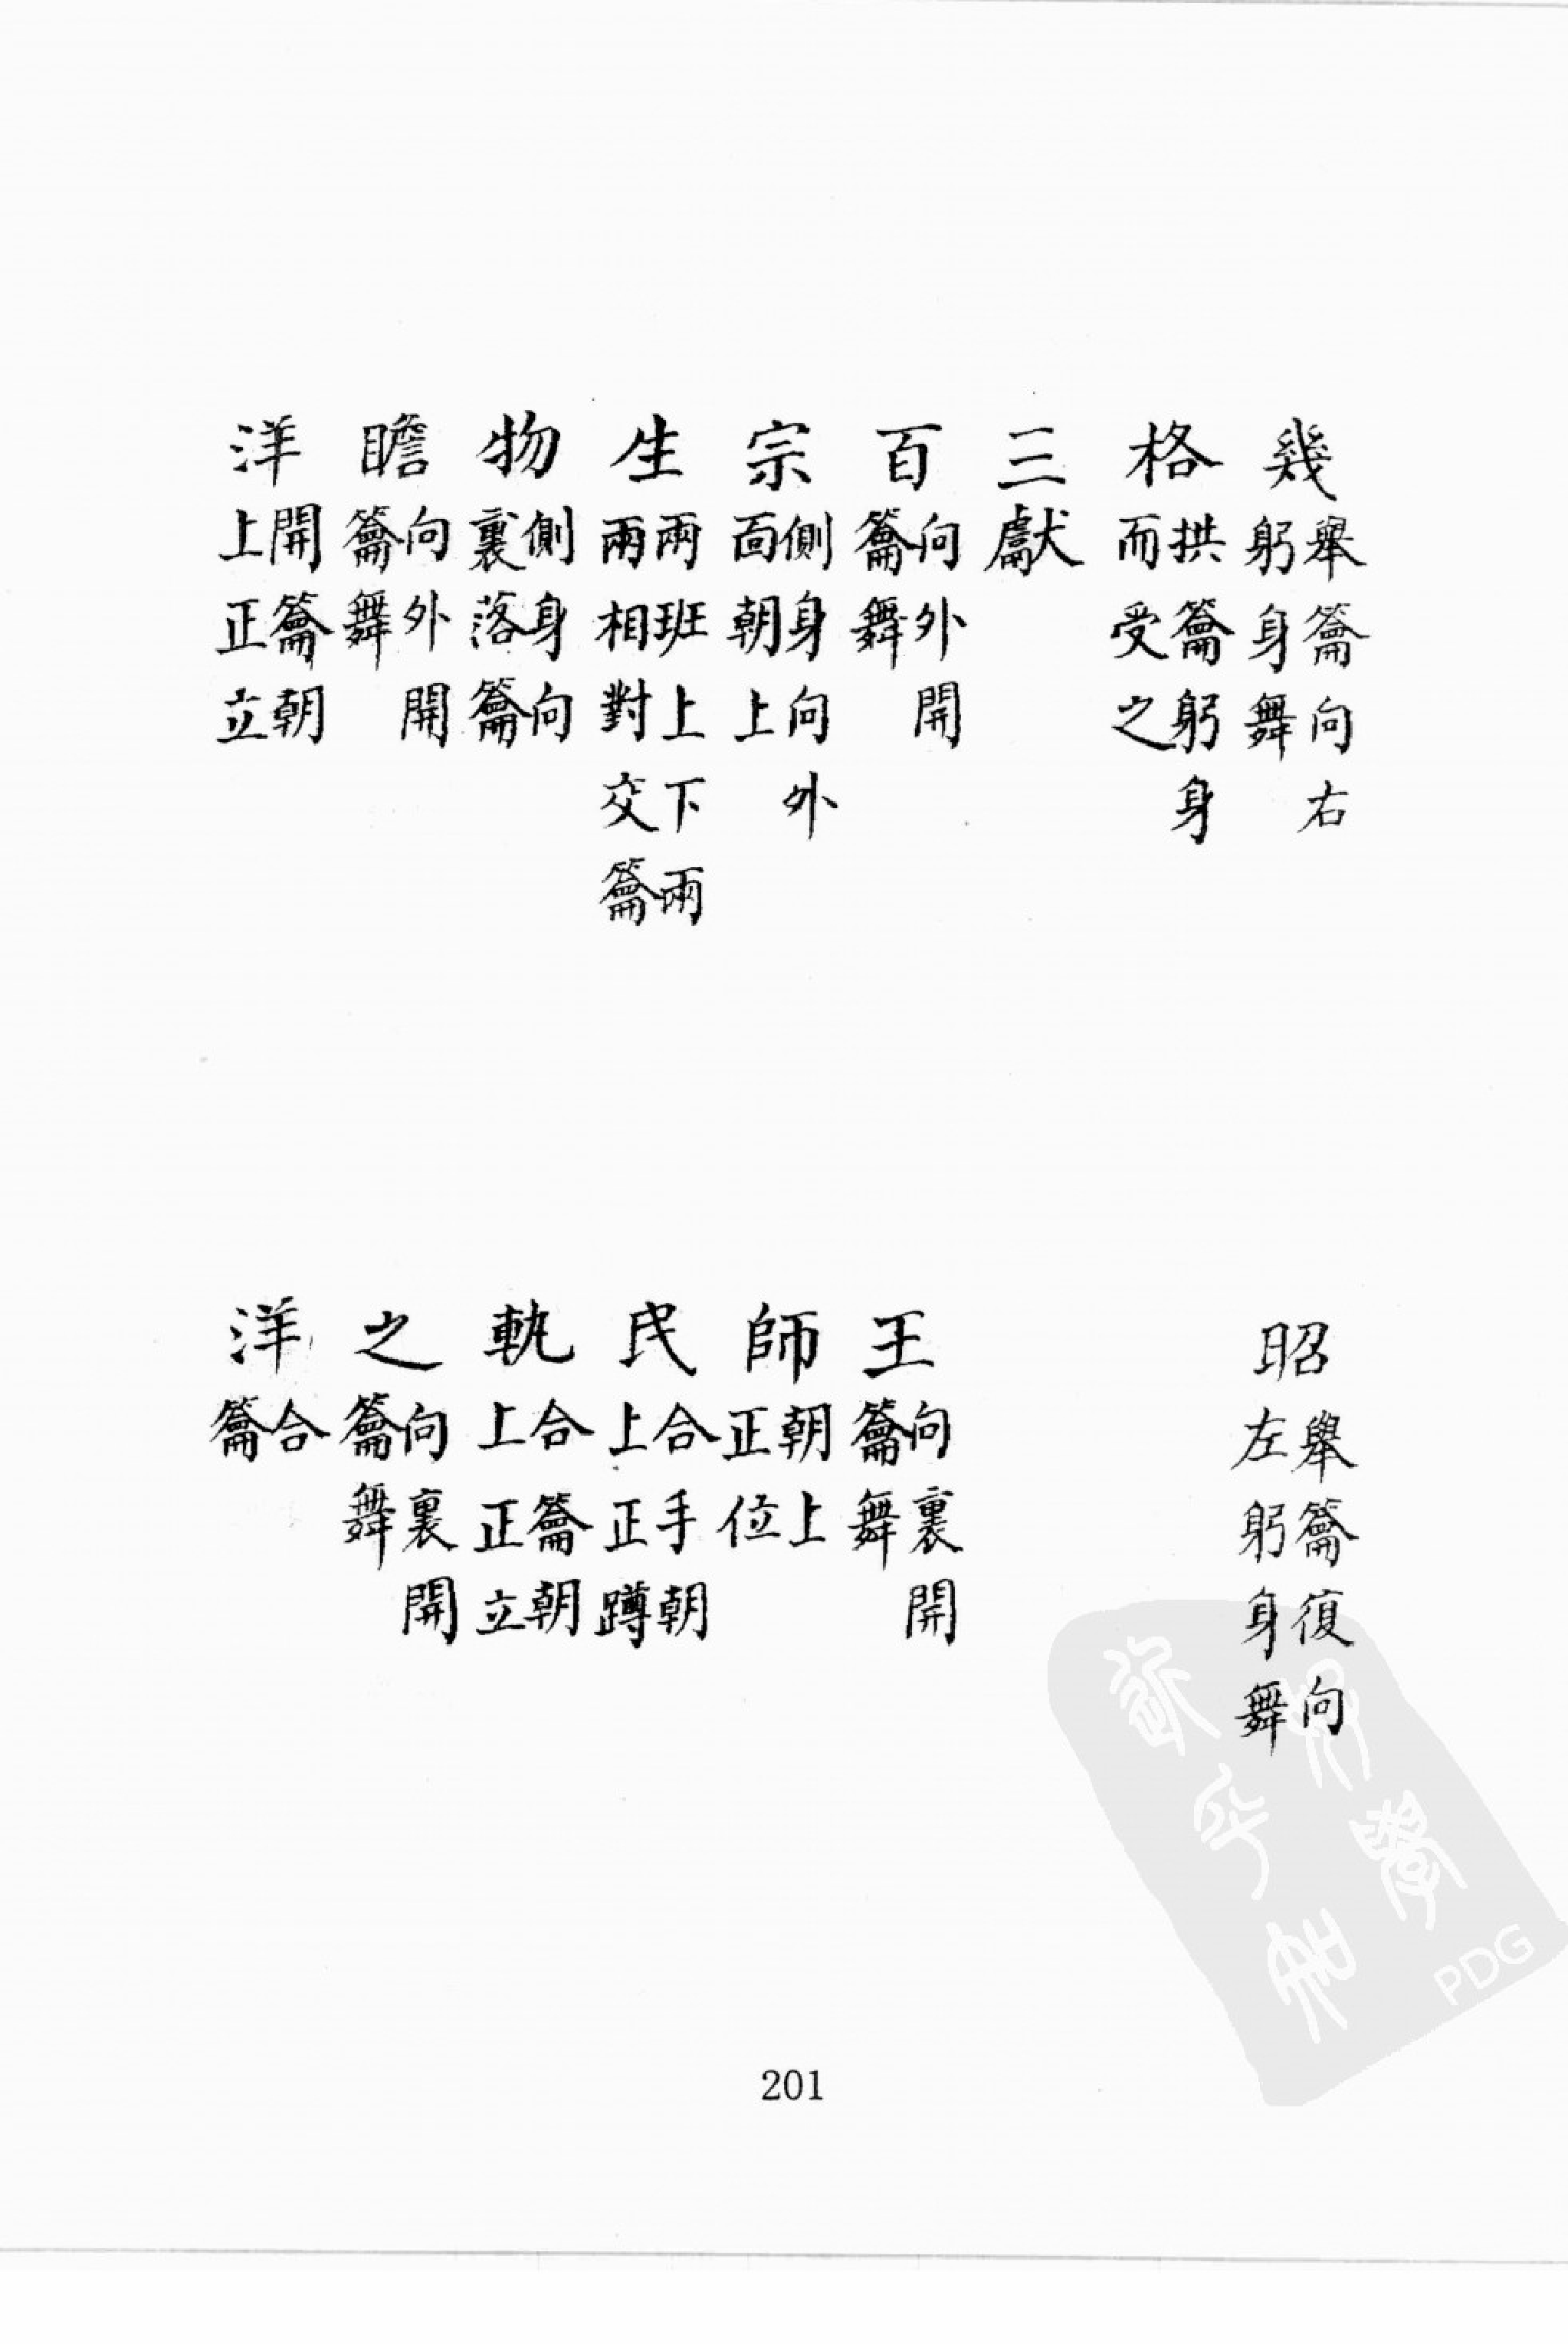 幾舉籥向右躬身舞
昭舉籥復向左躬身舞
格拱籥躬身而受之
三獻
百向外開籥舞
王向裏開籥舞
宗側身向外面朝上
師朝上正位
生兩班上下兩兩相對交籥
民合手朝上正蹲
物側身向裏落籥
軌合籥朝上正立
瞻向外開籥舞
之向裏開籥舞
洋開籥朝上正立
洋合籥
PDG
201